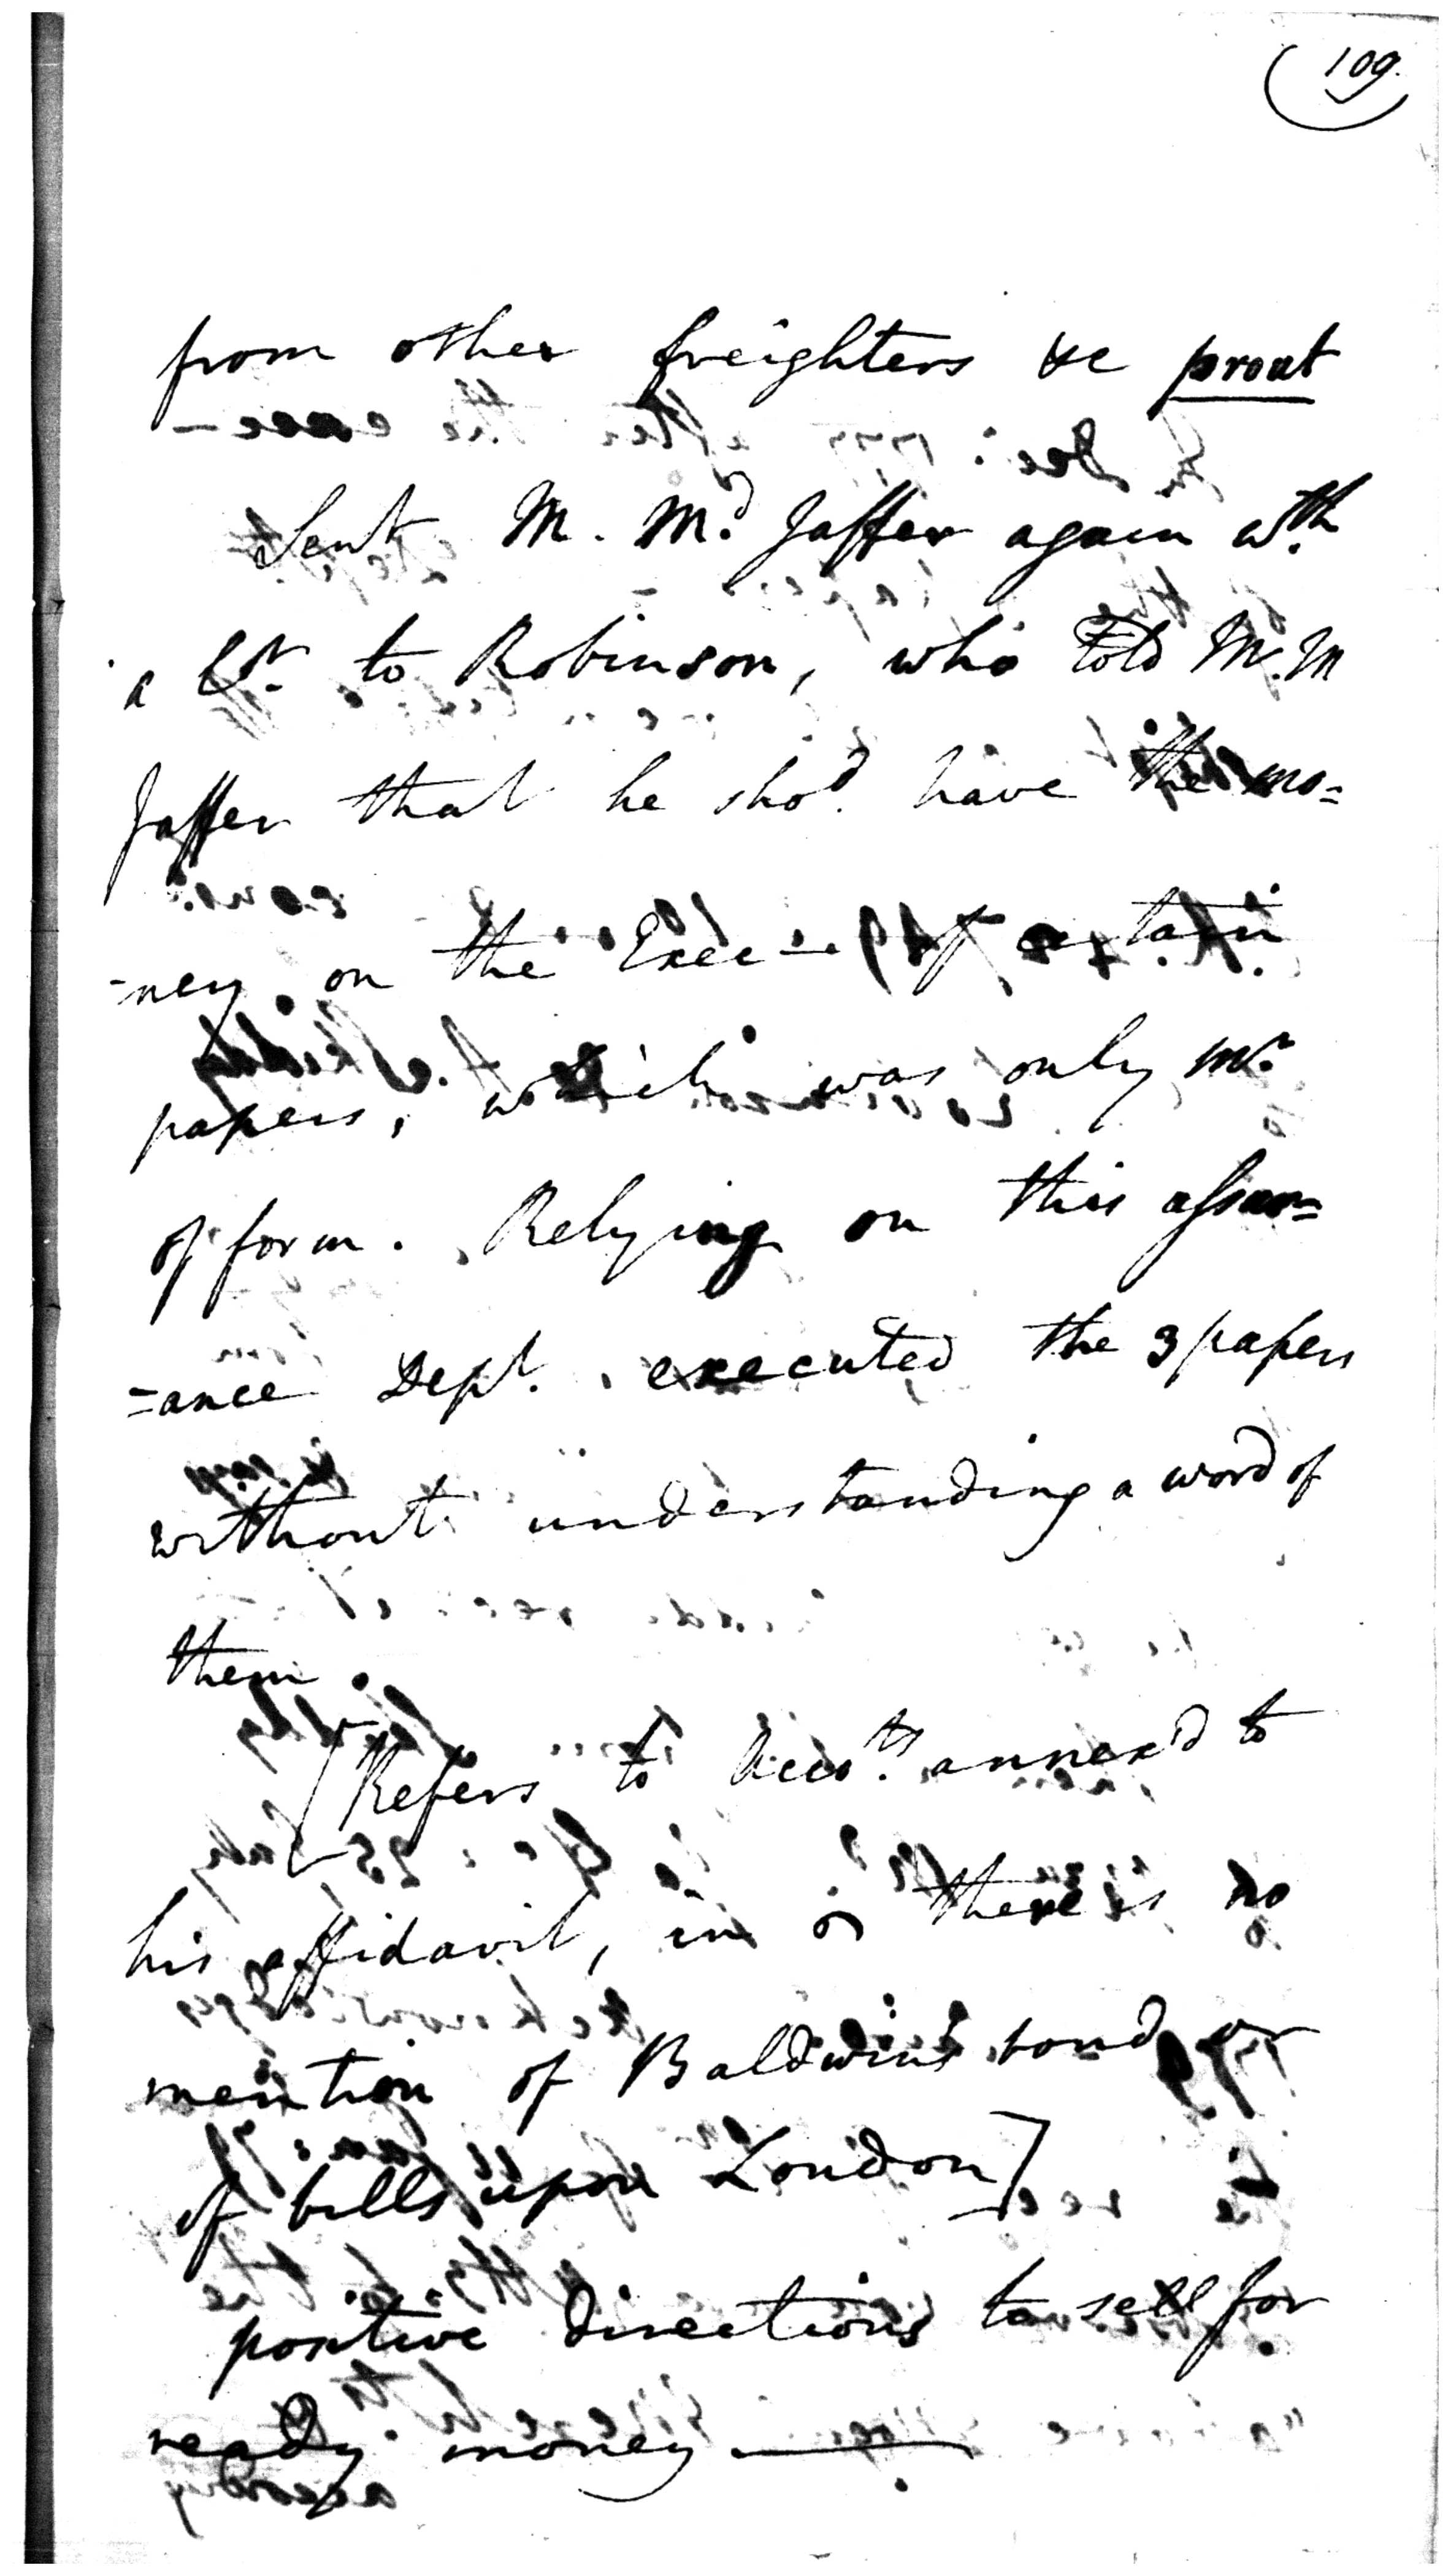 109.
from other freighters &c prout
Sent M. Md. Jaffer again wth.
a Lr. to Robinson, who told M. M
Jaffer that he shod. have the mo=
-ney on the Exec— of certain
papers, which was only mr.
of form. Relying on this assur=
=ance Dept. executed the 3 papers
without understanding a word of
them.
[Refers to Accots. annex'd to
his affidavit, in there is no
mention of Baldwin's bond or
of bills upon London]
positive directions to sell for
ready money —